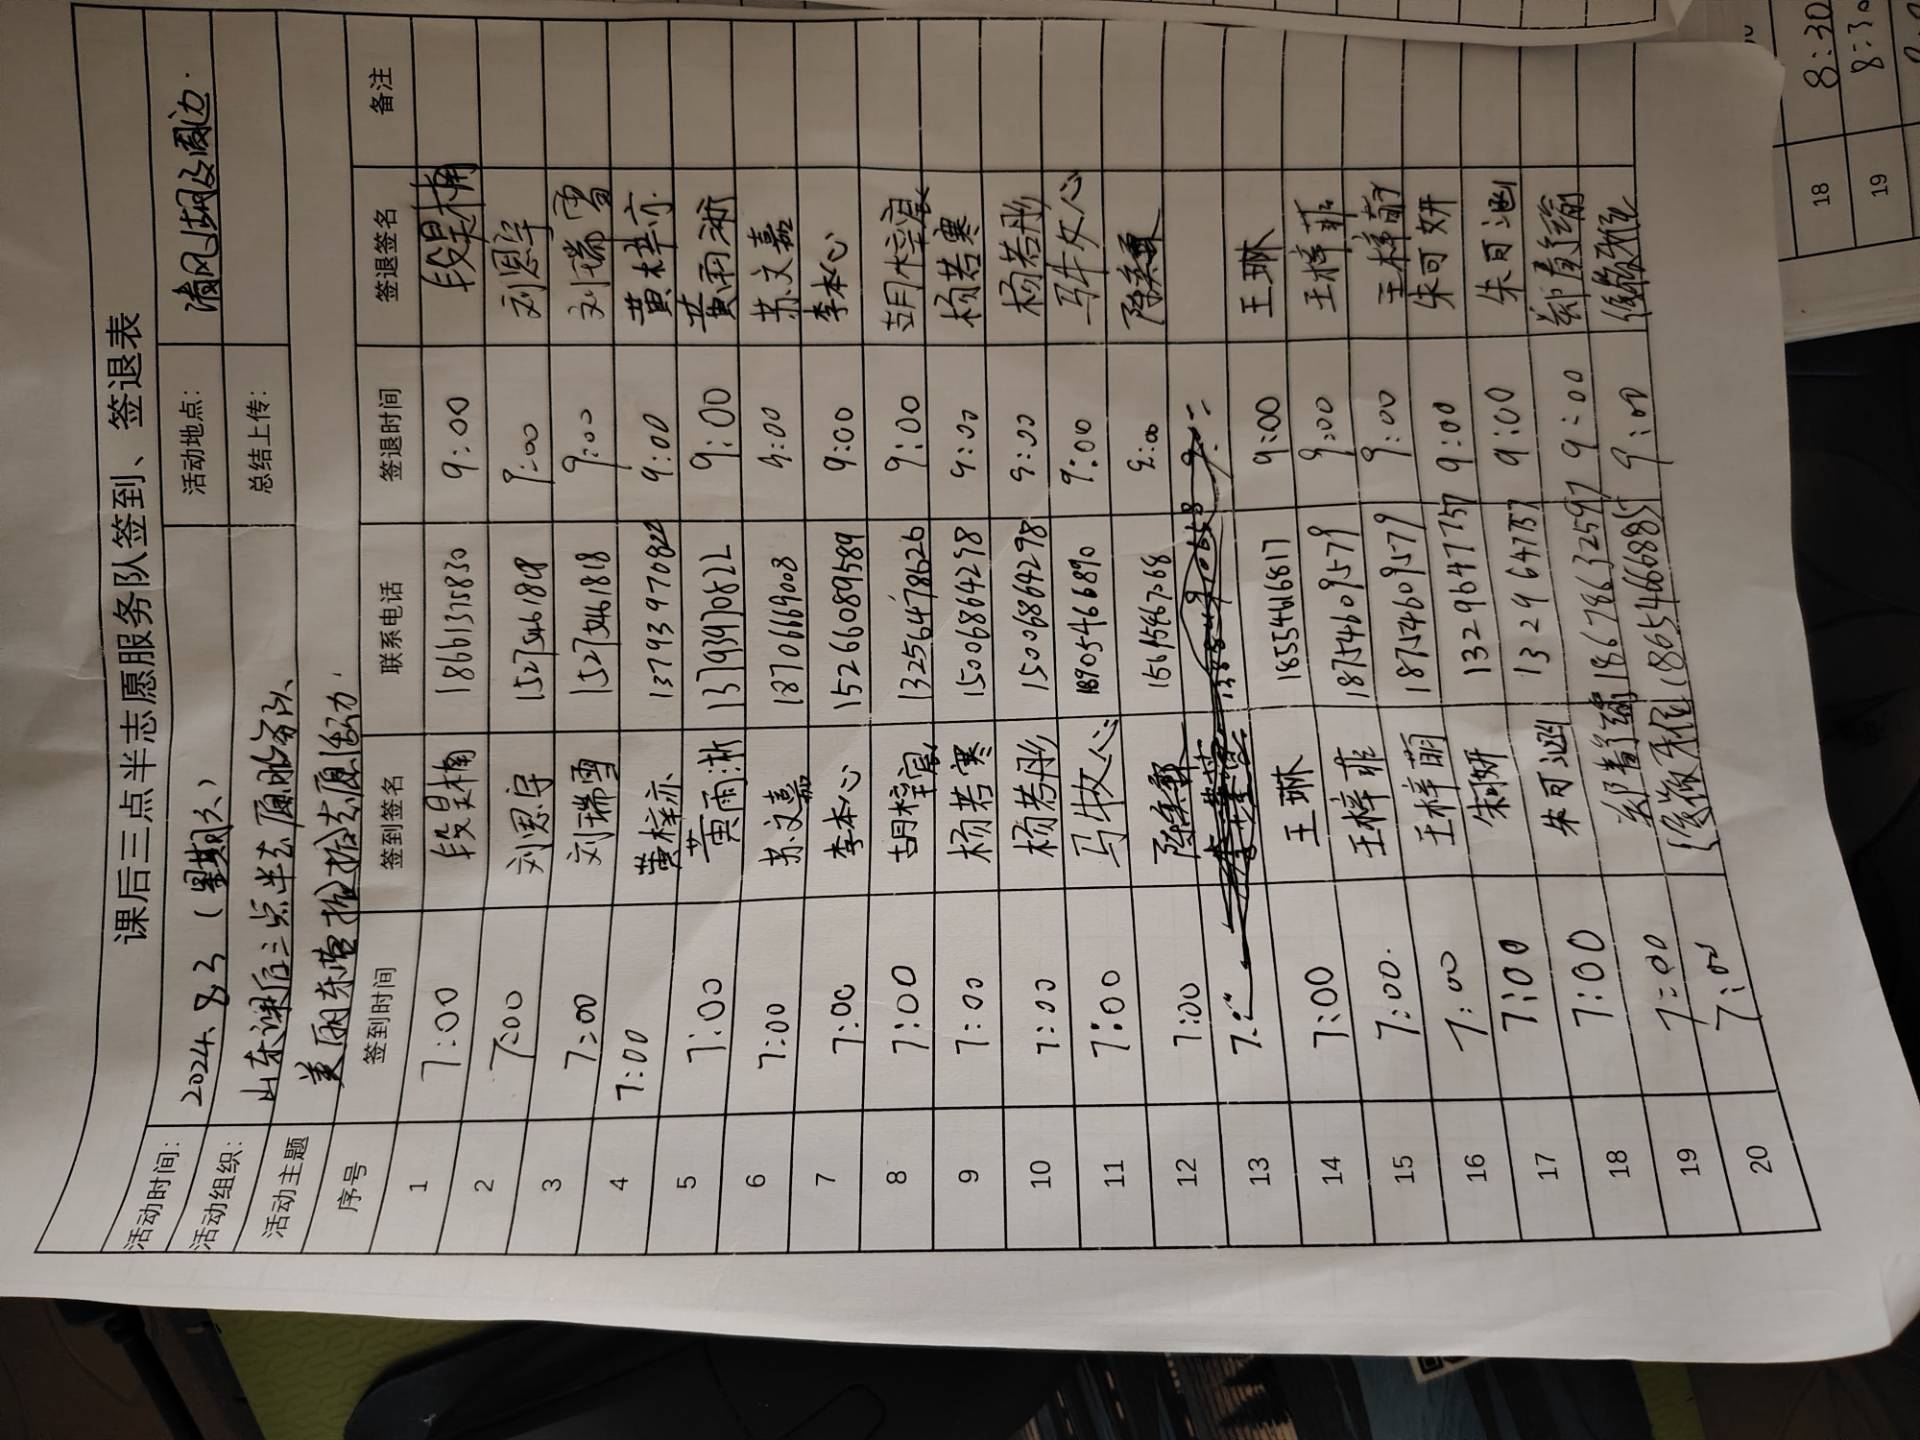 课后三点半志愿服务队签到、签退表
活动时间: 2024.8.3（星期六） 活动地点: 清风湖及周边.
活动组织: 山东课后三点半志愿服务队 总结上传:
活动主题 美丽东营捡拾志愿活动.
序号 签到时间 签到签名 联系电话 签退时间 签退签名 备注
1 7:00 段昊楠 18661375830 9:00 段昊楠
2 7:00 刘恩宇 15275461818 9:00 刘恩宇
3 7:00 刘瑞雪 15275461818 9:00 刘瑞雪
4 7:00 黄梓亦 13793970822 9:00 黄梓亦
5 7:00 黄雨浙 13793970822 9:00 黄雨浙
6 7:00 苏文嘉 18706669008 9:00 苏文嘉
7 7:00 李本心 15266089589 9:00 李本心
8 7:00 胡梓宸 13256478626 9:00 胡梓宸
9 7:00 杨若寒 15006864298 9:00 杨若寒
10 7:00 杨若彤 15006864298 9:00 杨若彤
11 7:00 马牧心 18905466890 9:00 马牧心
12 7:00 15615467068 9:00
13
14 7:00 王琳 18554616817 9:00 王琳
15 7:00. 王梓菲 18754609579 9:00 王梓菲
16 7:00 王梓萌 18754609579 9:00 王梓萌
17 7:00 朱可妍 1329647757 9:00 朱可妍
18 7:00 朱可涵 1329647757 9:00 朱可涵
19 7:00 18678632597 9:00
20 7:00 18654666885 9:00
18 8:30
19 8:30